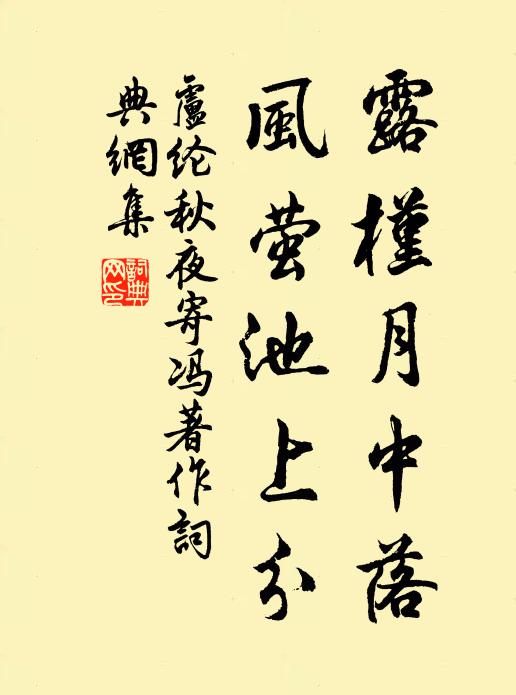 露槿月中落
風萤池上分
盧纶秋夜寄冯著作詞
典網集
詞典
网印